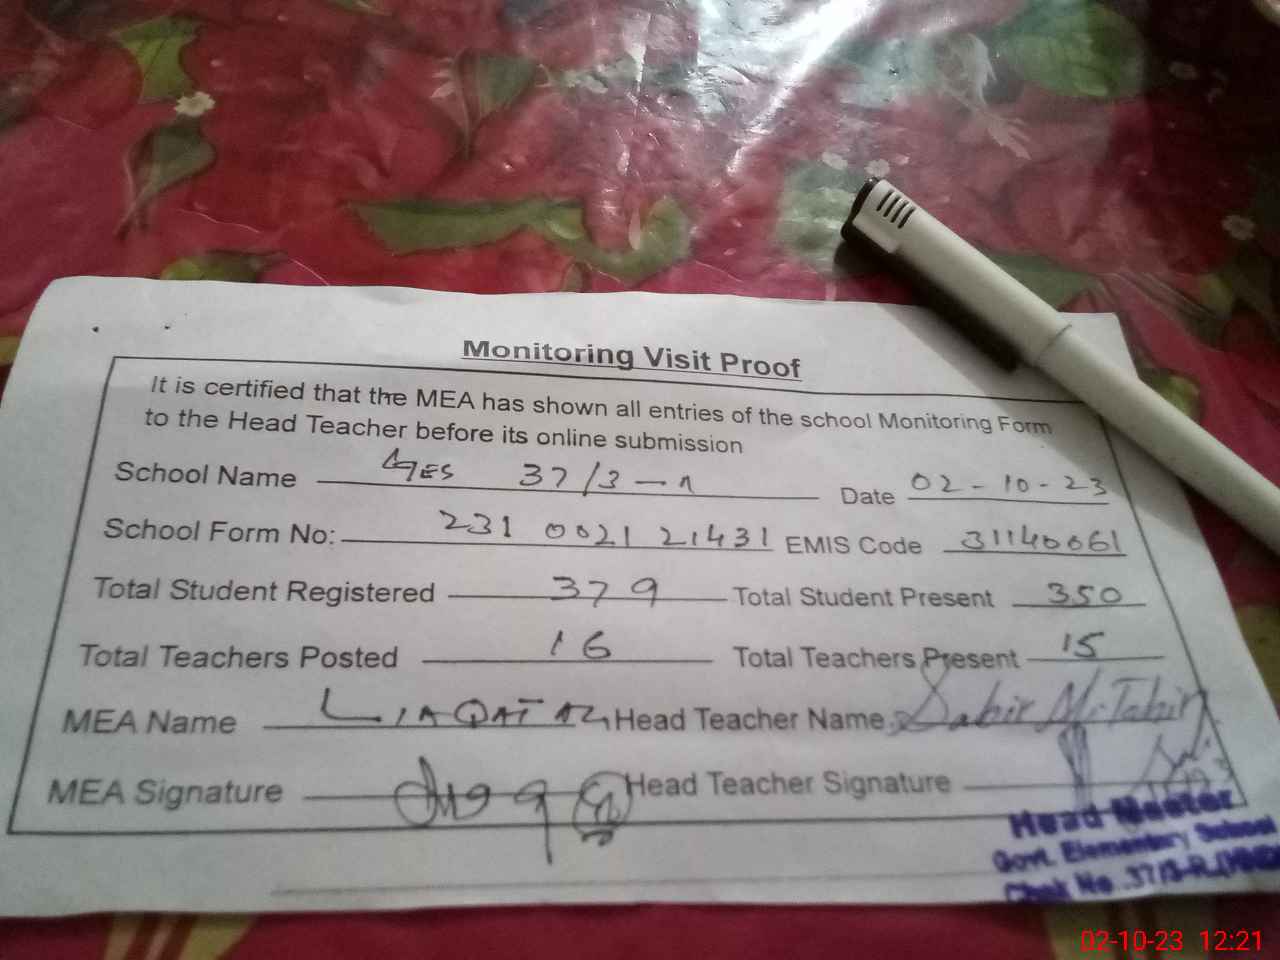 Monitoring Visit Proof
It is certified that the MEA has shown all entries of the school Monitoring Form
to the Head Teacher before its online submission
School Name GES 37/3-R Date 02-10-23
School Form No: 231 0021 21431 EMIS Code 31140061
Total Student Registered 379 Total Student Present 350
Total Teachers Posted 16 Total Teachers Present 15
MEA Name LIAQAT ALI Head Teacher Name Sabir M. Tahir
MEA Signature Head Teacher Signature
Head Master
Govt. Elementary School
Chak No. 37/3-R
02-10-23 12:21